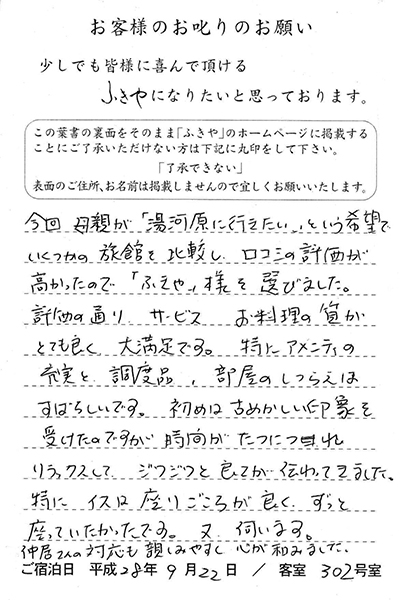 お客様のお叱りのお願い
少しでも皆様に喜んで頂ける
ふきやになりたいと思っております。
この葉書の裏面をそのまま「ふきや」のホームページに掲載する
ことにご了承いただけない方は下記に丸印をして下さい。
「了承できない」
表面のご住所、お名前は掲載しませんので宜しくお願いいたします。
今回 母親が「湯河原に行きたい」という希望で
いくつかの旅館を比較し 口コミの評価が
高かったので 「ふきや」様を選びました。
評価の通り サービス お料理の質が
とても良く 大満足です。特にアメニティの
充実と 調度品、部屋のしつらえは
すばらしいです。初めは古めかしい印象を
受けたのですが 時間がたつにつれ
リラックスして ジワジワと良さが伝わってきました。
特に イスは座りごこちが良く ずっと
座っていたかったです。又 伺います。
仲居さんの対応も親しみやすく 心が和みました。
ご宿泊日 平成28年9月22日 / 客室 302号室